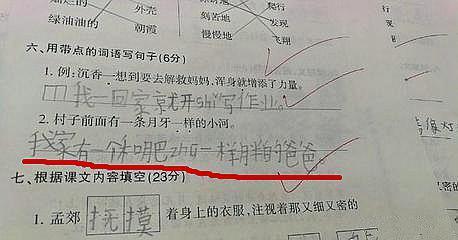 烂的 外壳 爬行
绿油油的 朝霞 刻苦地 发现
慢慢地 飞翔
六、用带点的词语写句子(6分)
1. 例:沉香一想到要去解救妈妈,浑身就增添了力量。
我一回家就开shi写作业。
2. 村子前面有一条月牙一样的小河。
我家有一个和 吧zhu一样胖的爸爸。
七、根据课文内容填空(23分)
1. 孟郊 抚摸 着身上的衣服,注视着那又细又密的